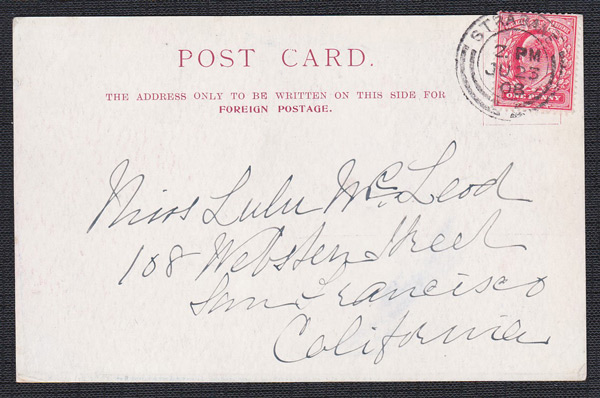 POST CARD.
THE ADDRESS ONLY TO BE WRITTEN ON THIS SIDE FOR
FOREIGN POSTAGE.
2 PM
23
08
ONE PENNY
Miss Lulu McLeod
108 Webster Street
San Francisco
California